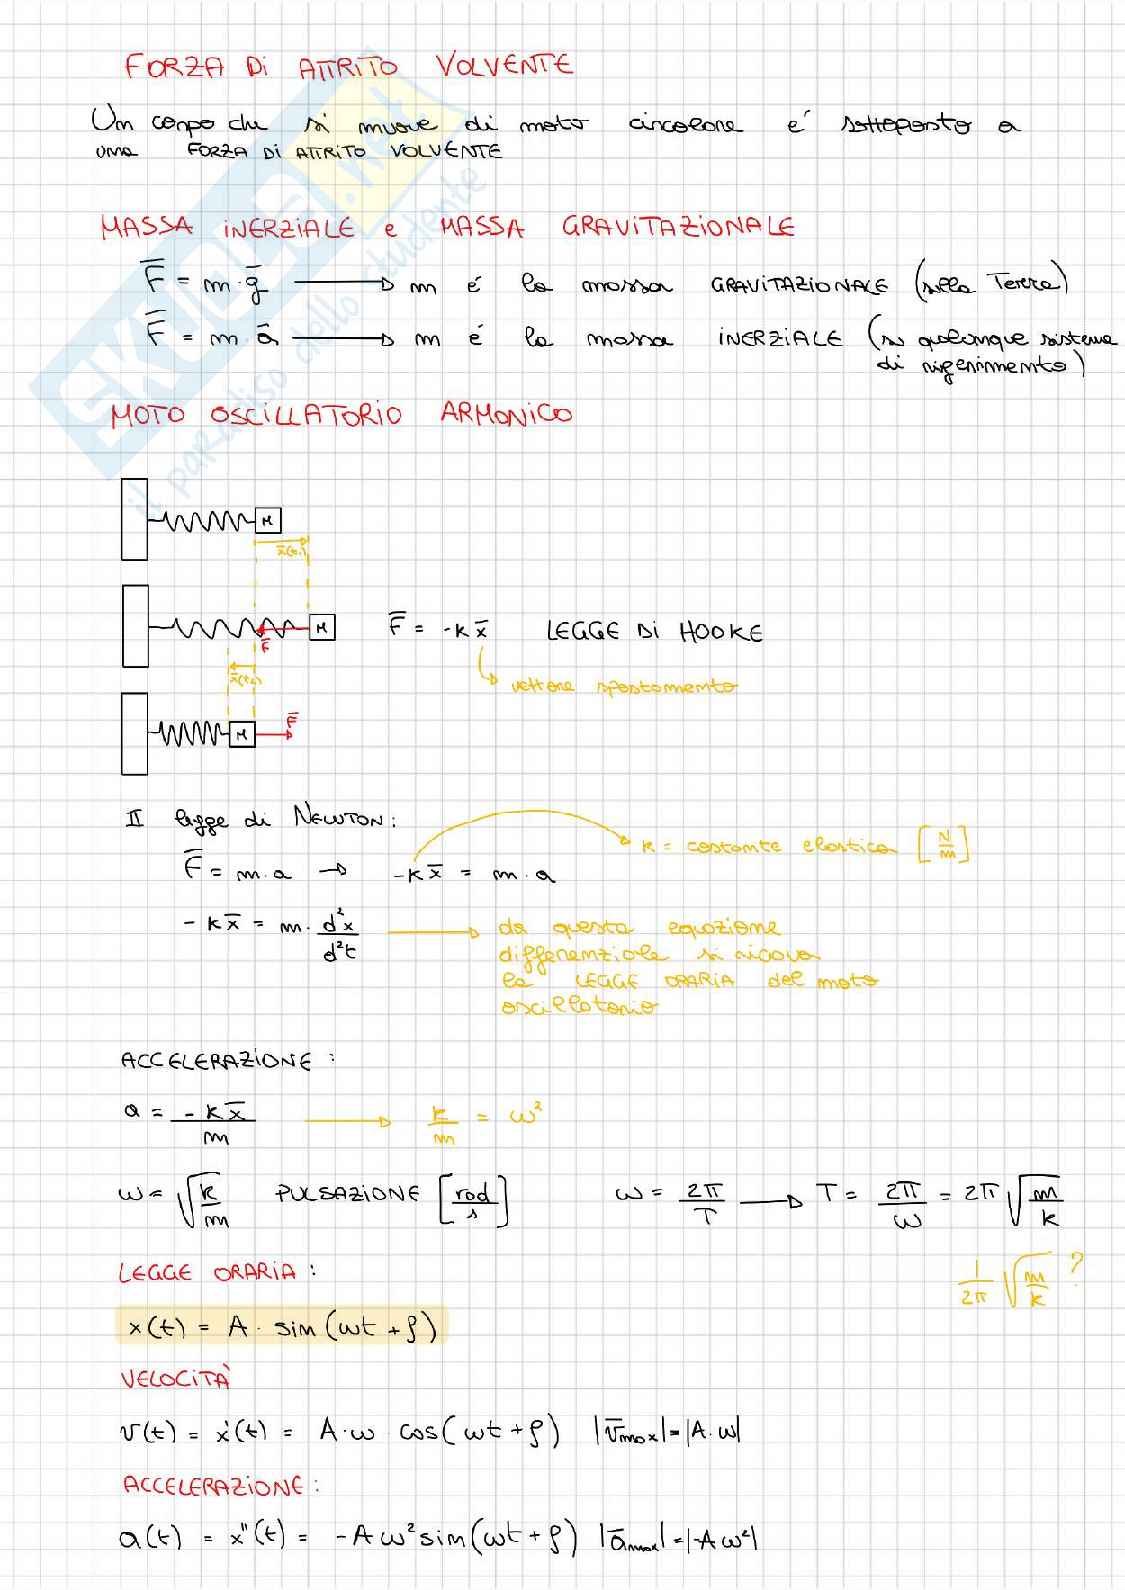 FORZA DI ATTRITO VOLVENTE
Un corpo che si muove di moto circolare é sottoposto a
una FORZA DI ATTRITO VOLVENTE
MASSA INERZIALE e MASSA GRAVITAZIONALE
F̅ = m · g̅ → m é la massa GRAVITAZIONALE (sulla Terra)
F̅ = m · a̅ → m é la massa INERZIALE (in qualunque sistema
di riferimento)
MOTO OSCILLATORIO ARMONICO
M
x̅(t₁)
M
F̅
F̅ = -k x̅ LEGGE DI HOOKE
x̅(t₂)
vettore spostamento
M
F̅
II legge di NEWTON:
k = costante elastica [N/m]
F̅ = m · a → -k x̅ = m · a
-k x̅ = m · d²x/d²t → da questa equazione
differenziale si ricava
la LEGGE ORARIA del moto
oscillatorio
ACCELERAZIONE :
a = -k x̅/m → k/m = ω²
ω = √k/m PULSAZIONE [rad/s] ω = 2π/T → T = 2π/ω = 2π √m/k
1/2π √m/k ?
LEGGE ORARIA :
x(t) = A · sin(ωt + φ)
VELOCITÀ
v(t) = x'(t) = A·ω cos(ωt + φ) |v̅max| = |A·ω|
ACCELERAZIONE :
a(t) = x''(t) = -Aω² sin(ωt + φ) |a̅max| = |-Aω²|
SKUOLA.net
il paradiso dello studente